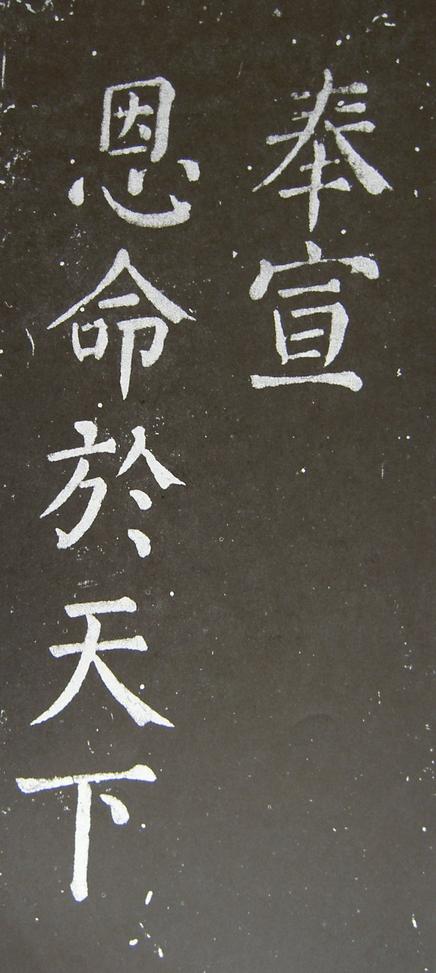 奉宣
恩命於天下